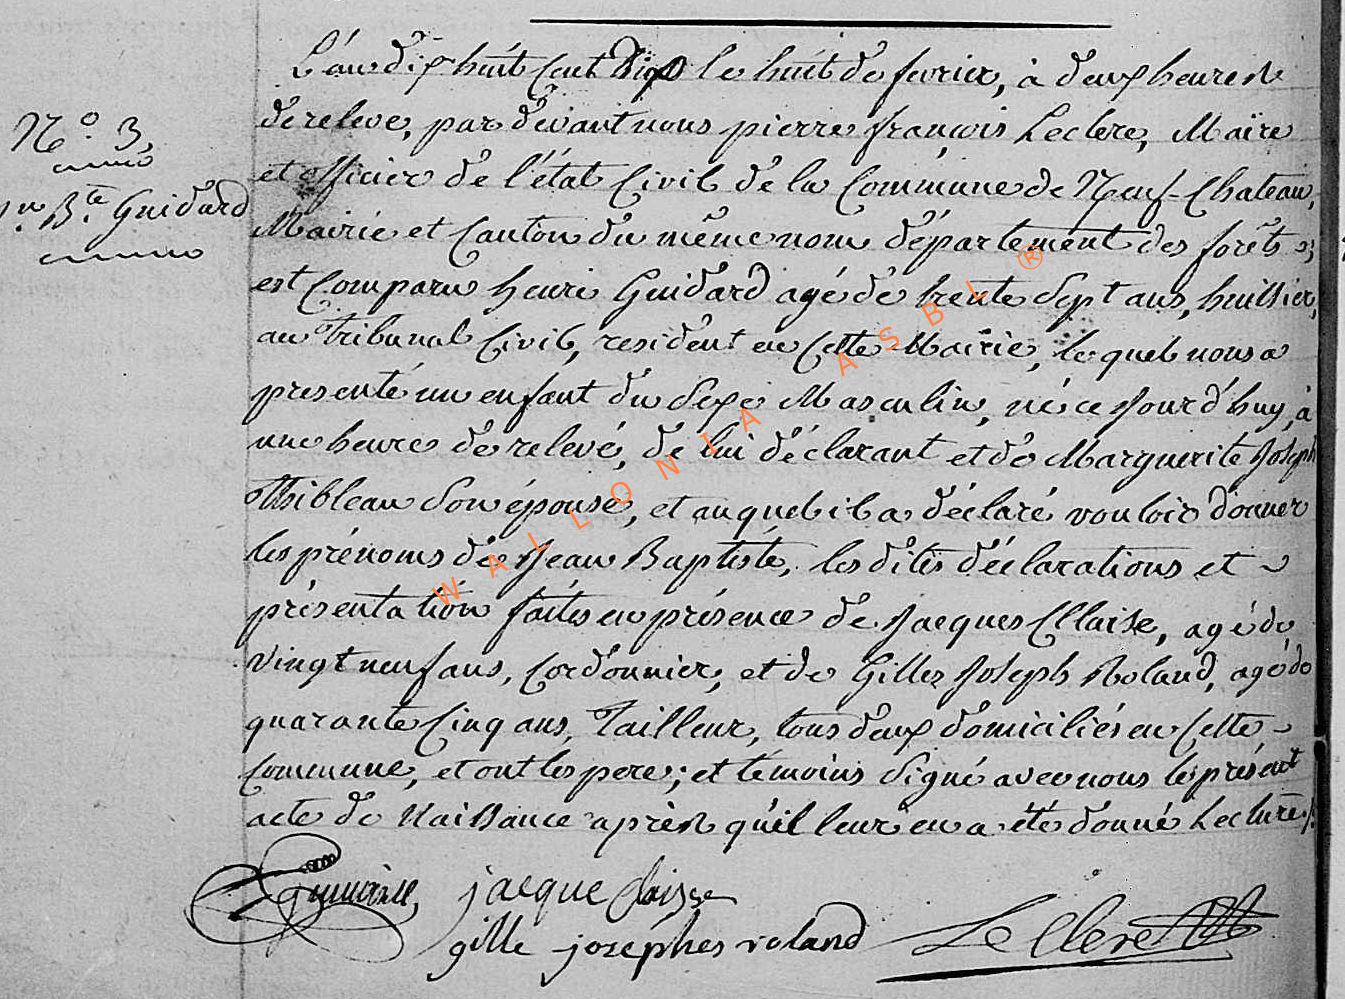 L'an dix huit cent dix le huit de fevrier, à deux heures
de relevé, par devant nous pierre françois Leclere, Maire
N.º 3,
et officier de l'état Civil de la Commune de Neuf-Chateau,
J.n B.te Guidard
Mairie et Canton du même nom département des forêts;
est Comparu henri Guidard agé de trente Sept ans, huissier,
au Tribunal Civil, resident en Cette Mairie, lequel nous a
presenté un enfant du Sexe Masculin, né ce Jour d'huy, à
une heure de relevé, de lui déclarant et de Marguerite Joseph
Thibleau Son épouse, et auquel il a déclaré vouloir donner
les prénoms de Jean Baptiste, les dites déclarations et
présentation faites en présence de Jacques Claise, agé de
vingt neuf ans, Cordonnier, et de Gilles Joseph Roland, agé de
quarante Cinq ans, Tailleur, tous deux domiciliés en Cette
Commune, et ont les pere; et témoins Signé avec nous le présent
acte de Naissance après qu'il leur en a été donné Lecture./.
jacque claisse
gille josephes roland
LeClere
WALLONIA ASBL ®